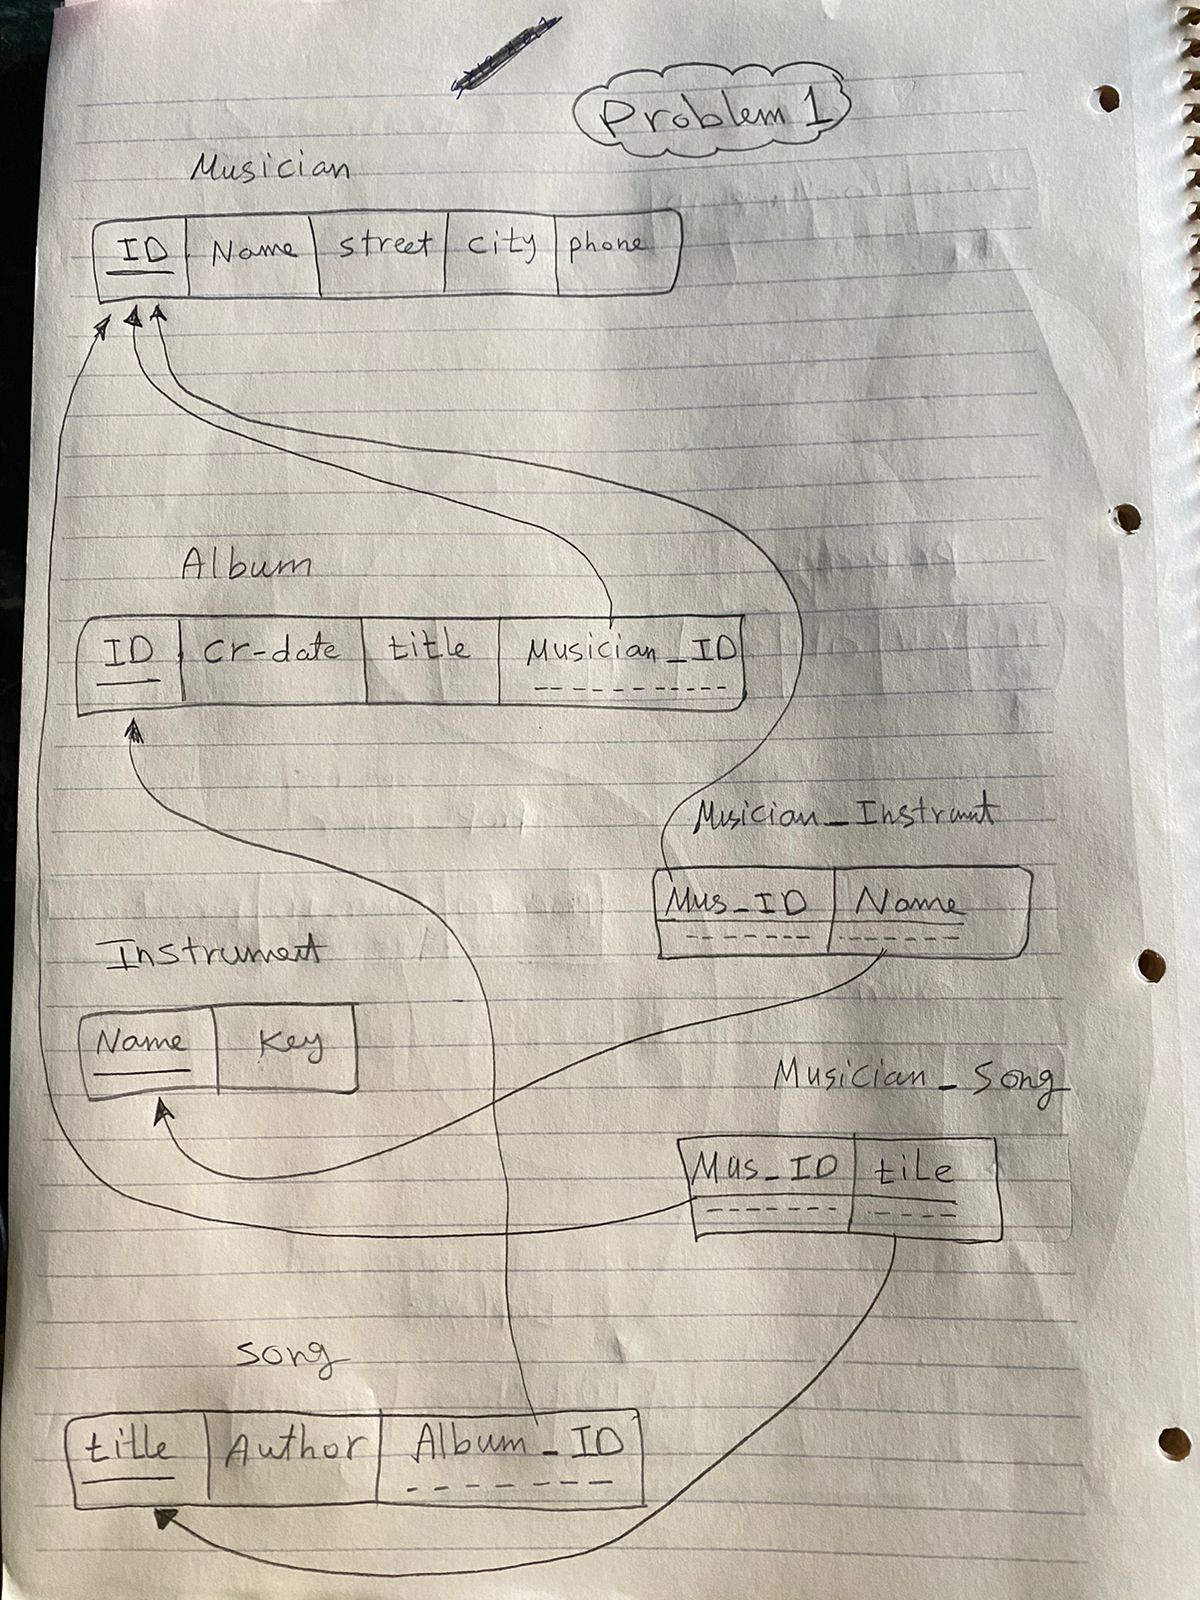 Problem 1
Musician
ID Name street city phone
Album
ID cr-date title Musician_ID
Musician_Instrumt
Mus_ID Name
Instrument
Name Key
Musician_Song
Mus_ID tile
song
title Author Album_ID